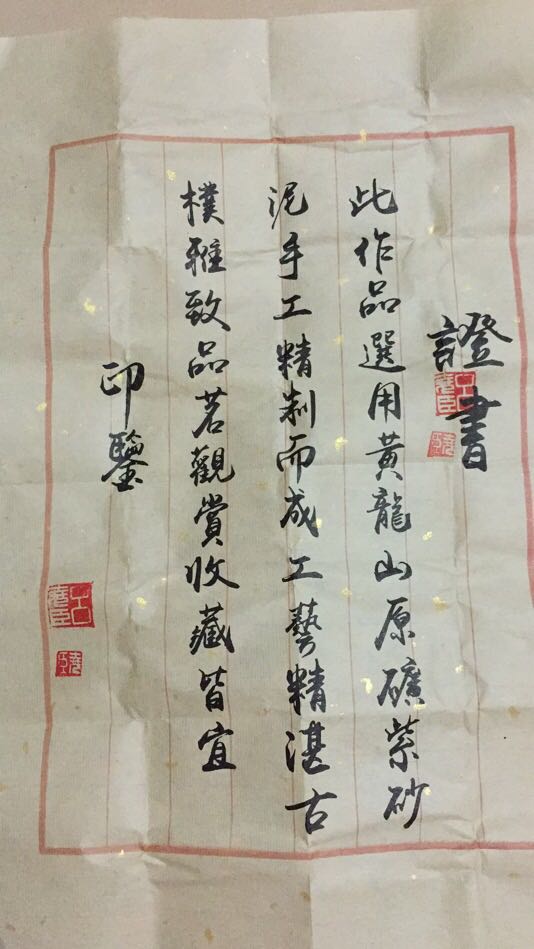 證書
此作品選用黃龍山原礦紫砂
泥手工精制而成工藝精湛古
樸雅致品茗觀賞收藏皆宜
印鑒